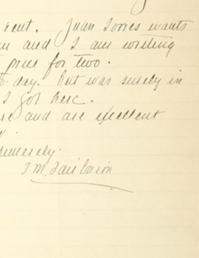 rent. Juan Torres wants
and I am writing
price for two.
day. But was surely in
I got here.
and are excellent
Sincerely.